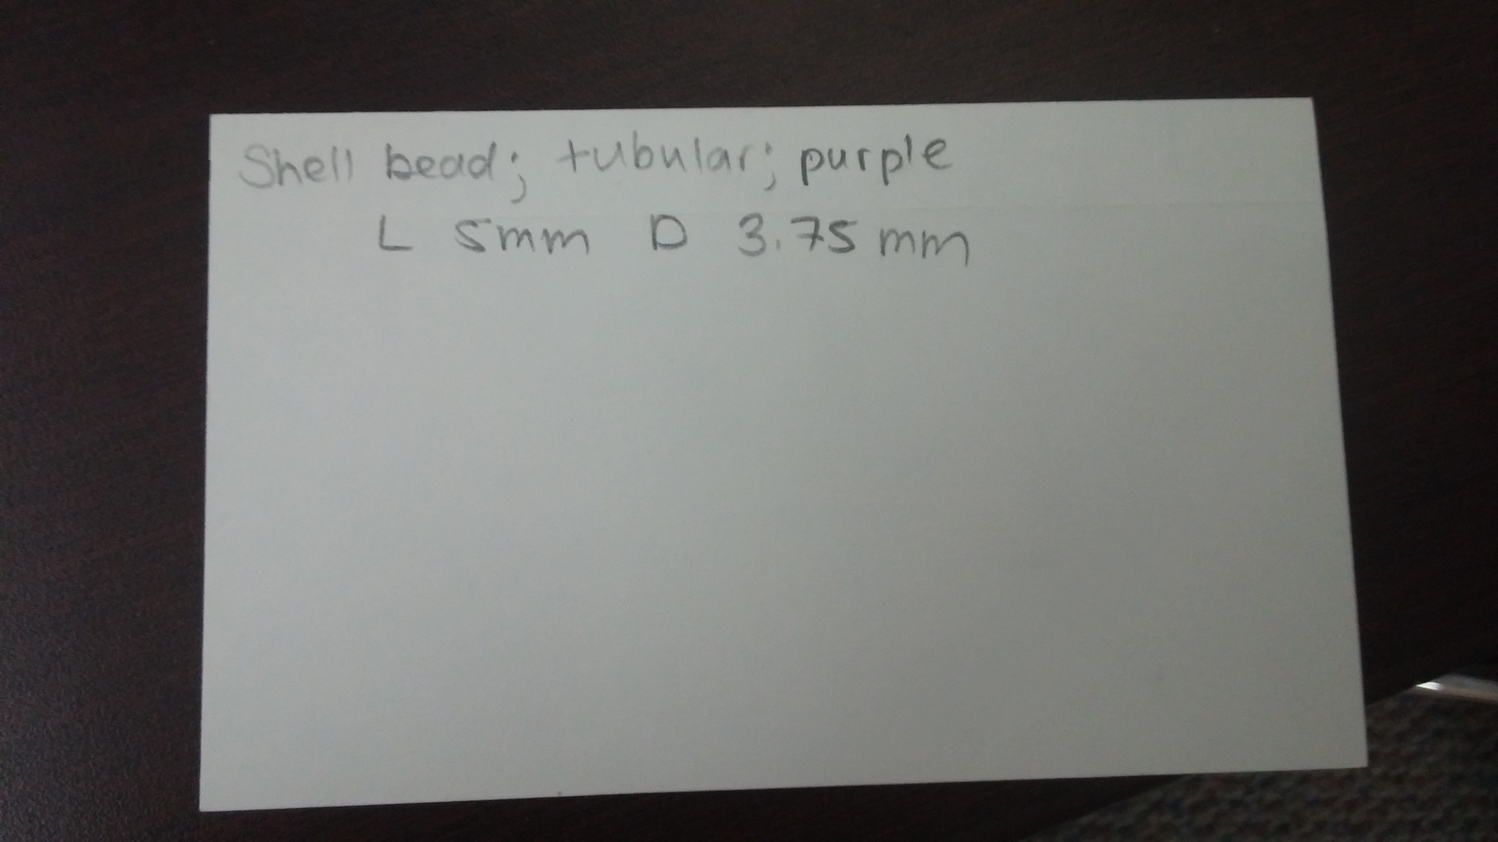 Shell bead; tubular; purple
L 5mm D 3.75mm